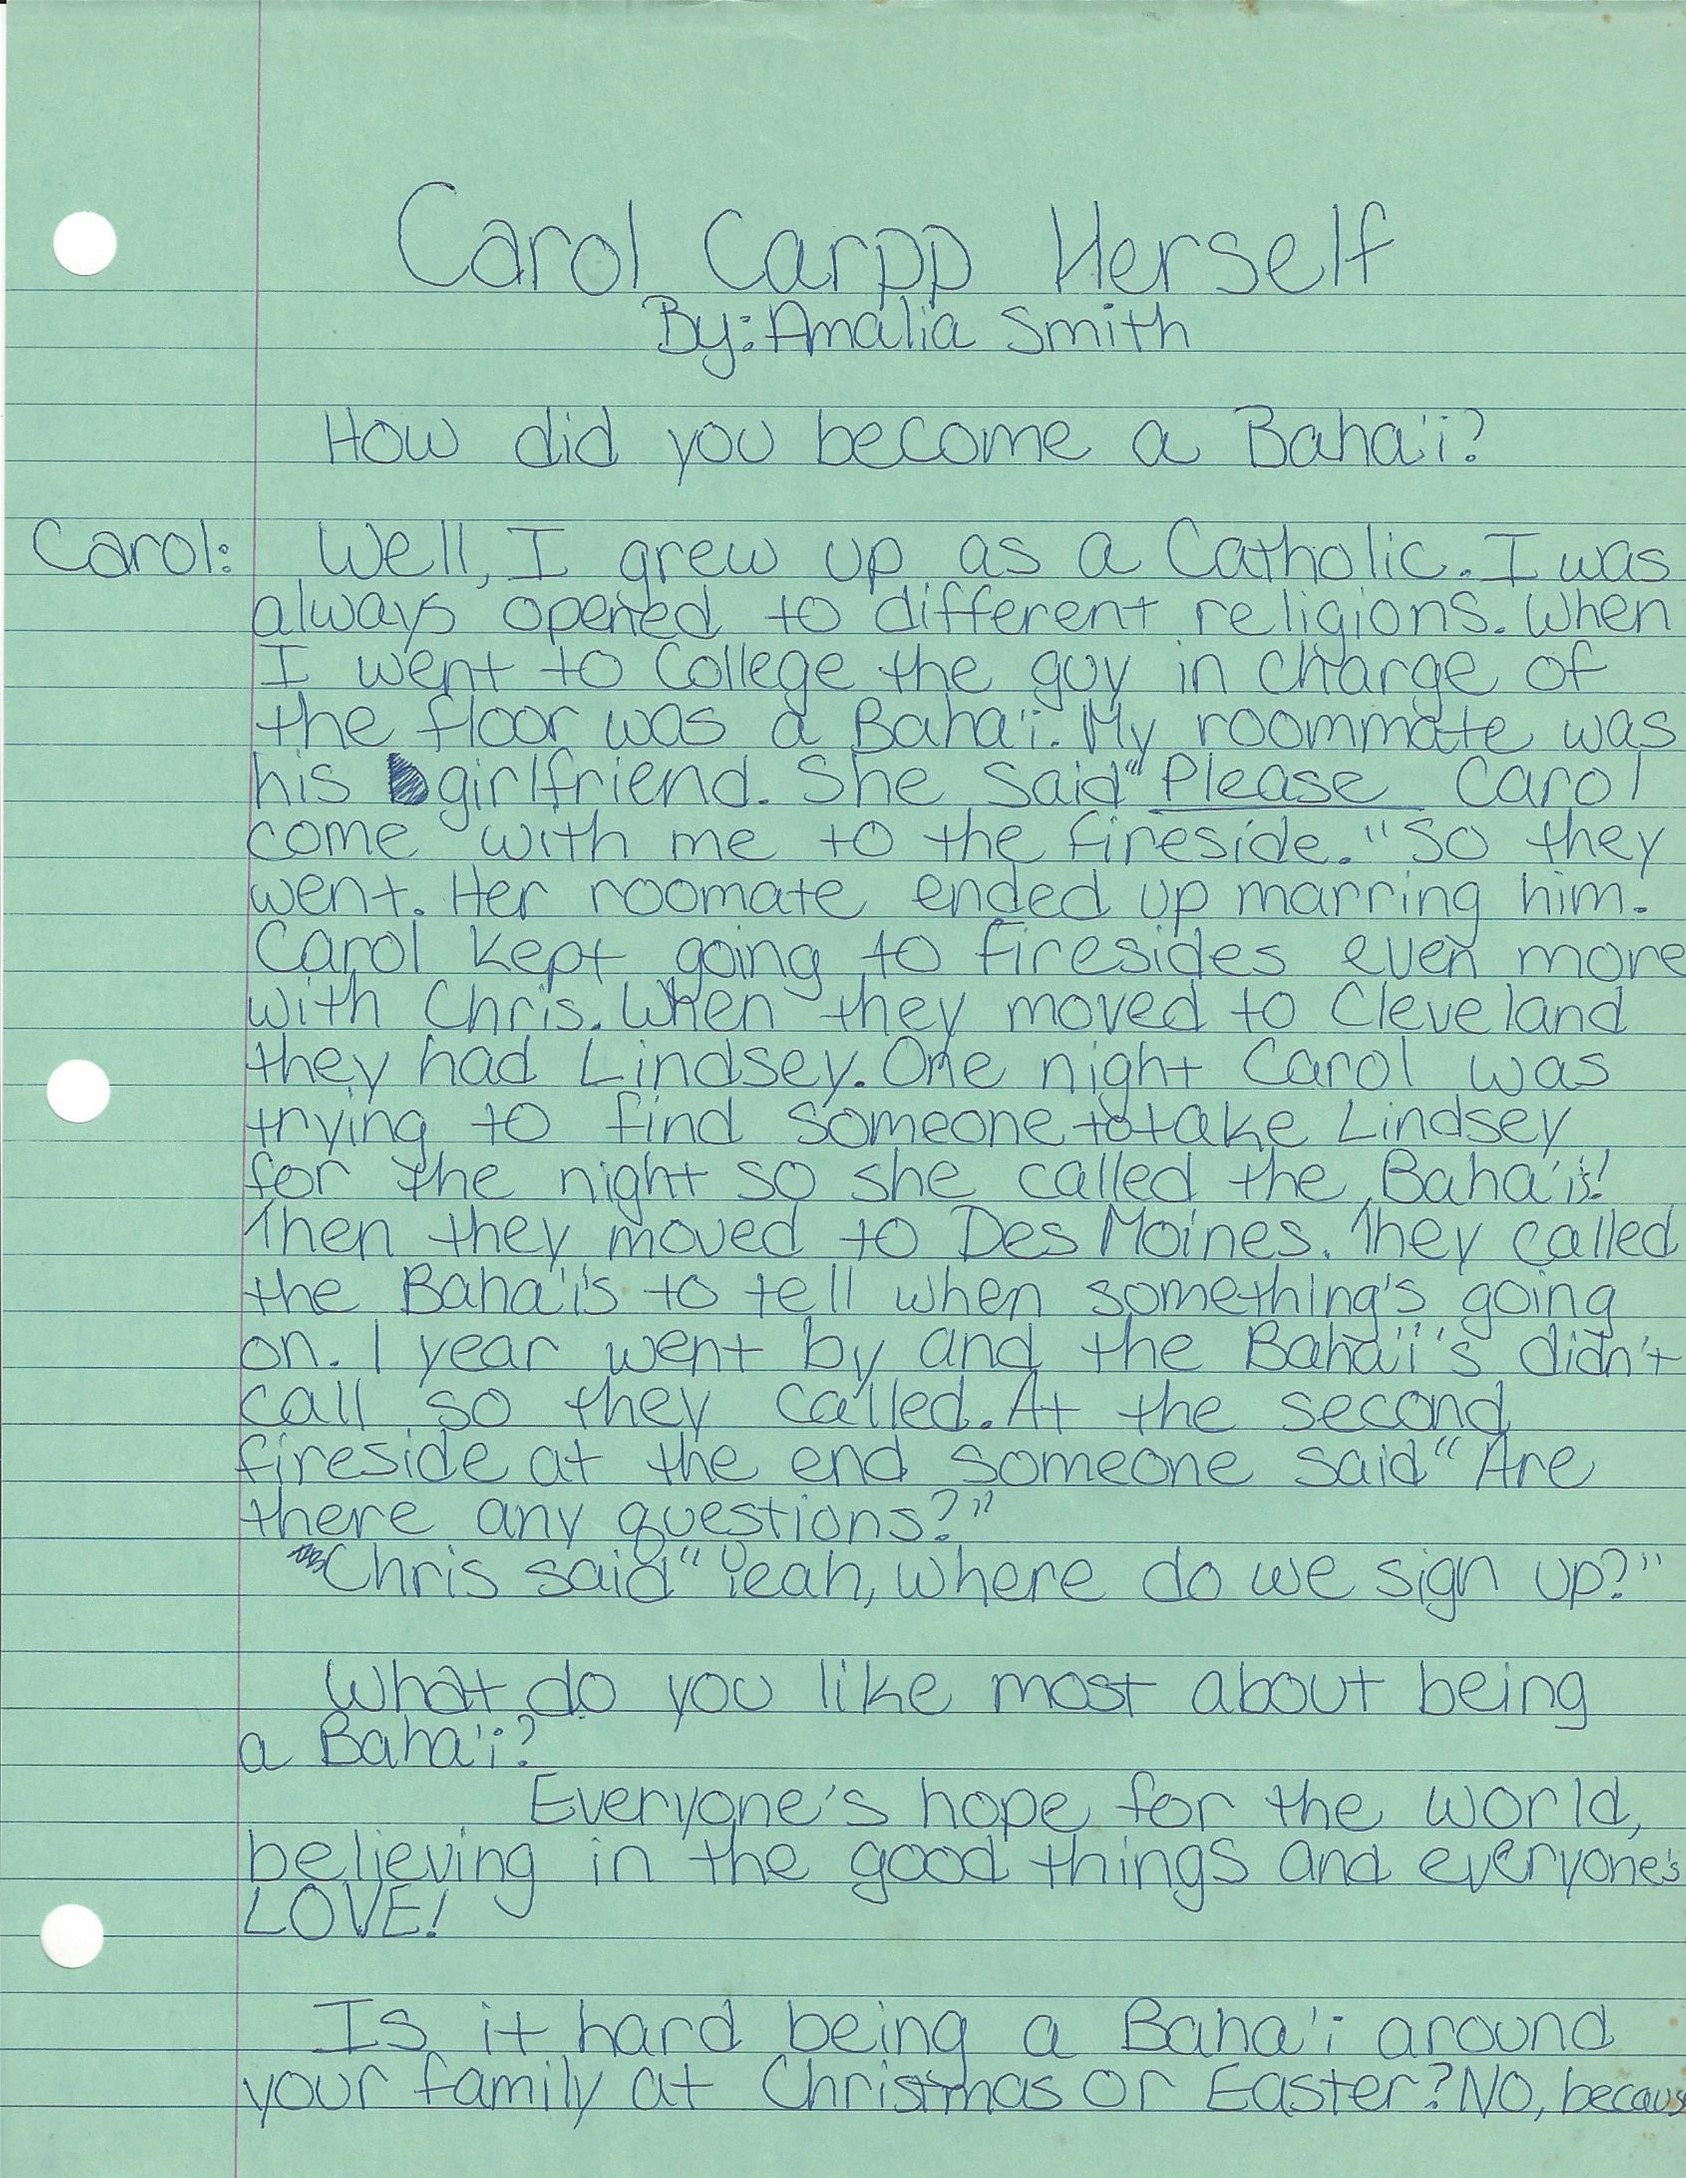 Carol Carpp Herself
By: Amalia Smith
How did you become a Baha'i?
Carol: Well, I grew up as a Catholic. I was
always opened to different religions. When
I went to College the guy in charge of
the floor was a Baha'i. My roommate was
his girlfriend. She said "Please Carol
come with me to the fireside." So they
went. Her roomate ended up marring him.
Carol kept going to firesides even more
with Chris. When they moved to Cleveland
they had Lindsey. One night Carol was
trying to find someone to take Lindsey
for the night so she called the Baha'is!
Then they moved to Des Moines. They called
the Baha'i's to tell when something's going
on. 1 year went by and the Baha'i's didn't
call so they called. At the second
fireside at the end someone said "Are
there any questions?"
Chris said "Yeah, where do we sign up?"
What do you like most about being
a Baha'i?
Everyone's hope for the world,
believing in the good things and everyone's
LOVE!
Is it hard being a Baha'i around
your family at Christmas or Easter? No, becaus